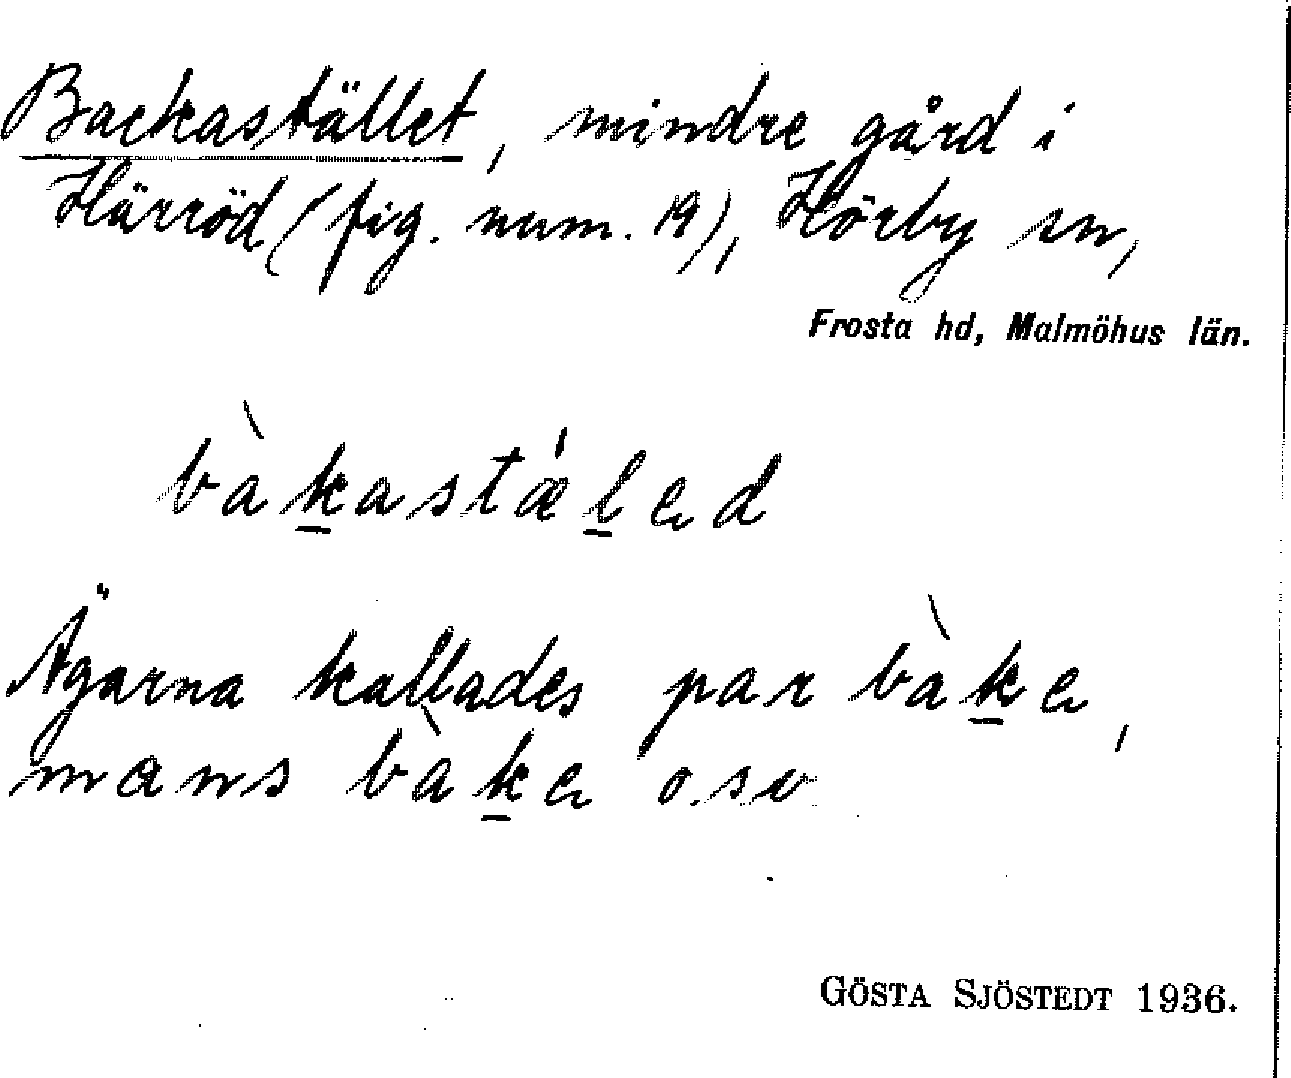 Backastället, mindre gård i
Härröd (fig. num. 19), Hörby sn,
Frosta hd, Malmöhus län.
bàk̲astǽl̲ed
Ägarna kallades par bàk̲e,
mans bàk̲e o.s.v.
GÖSTA SJÖSTEDT 1936.